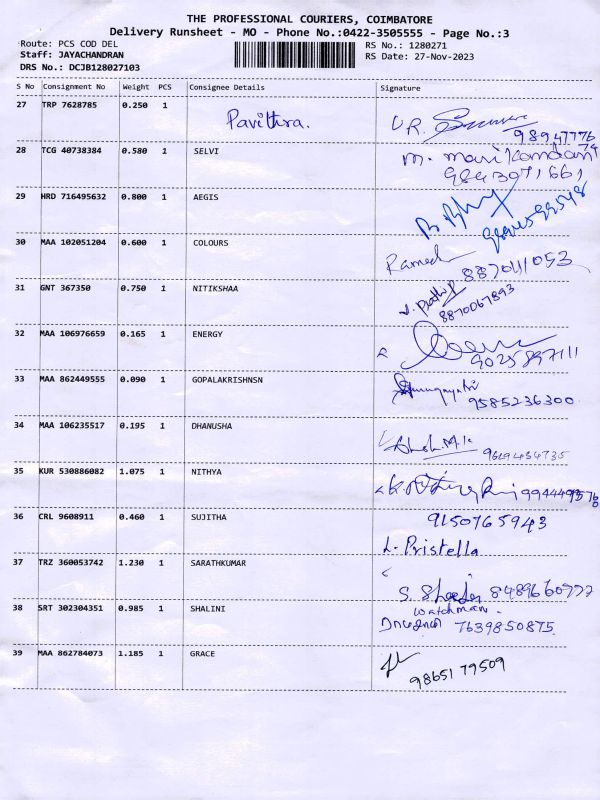 THE PROFESSIONAL COURIERS, COIMBATORE
Delivery Runsheet - MO - Phone No.:0422-3505555 - Page No.:3
Route: PCS COD DEL
RS No.: 1280271
Staff: JAYACHANDRAN
RS Date: 27-Nov-2023
DRS No.: DCJB128027103
S No Consignment No Weight PCS Consignee Details Signature
27 TRP 7628785 0.250 1 Pavithra. R.
98947776
28 TCG 40738384 0.580 1 SELVI m. manikandan 74
9843071661
29 HRD 716495632 0.800 1 AEGIS
30 MAA 102051204 0.600 1 COLOURS Ramesh
8870411053
31 GNT 367350 0.750 1 NITIKSHAA
8870067893
32 MAA 106976659 0.165 1 ENERGY
9025897111
33 MAA 862449555 0.090 1 GOPALAKRISHNSN
9585236300
34 MAA 106235517 0.195 1 DHANUSHA
9619434735
35 KUR 530886082 1.075 1 NITHYA
36 CRL 9608911 0.460 1 SUJITHA 9150765943
L. Pristella
37 TRZ 360053742 1.230 1 SARATHKUMAR
S. 8489660777
watchman
38 SRT 302304351 0.985 1 SHALINI 7639850875.
39 MAA 862784073 1.185 1 GRACE
98651 79509